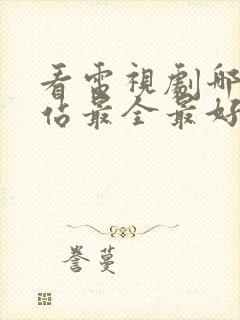 看電視劇哪
佔最全最好
譽蔓